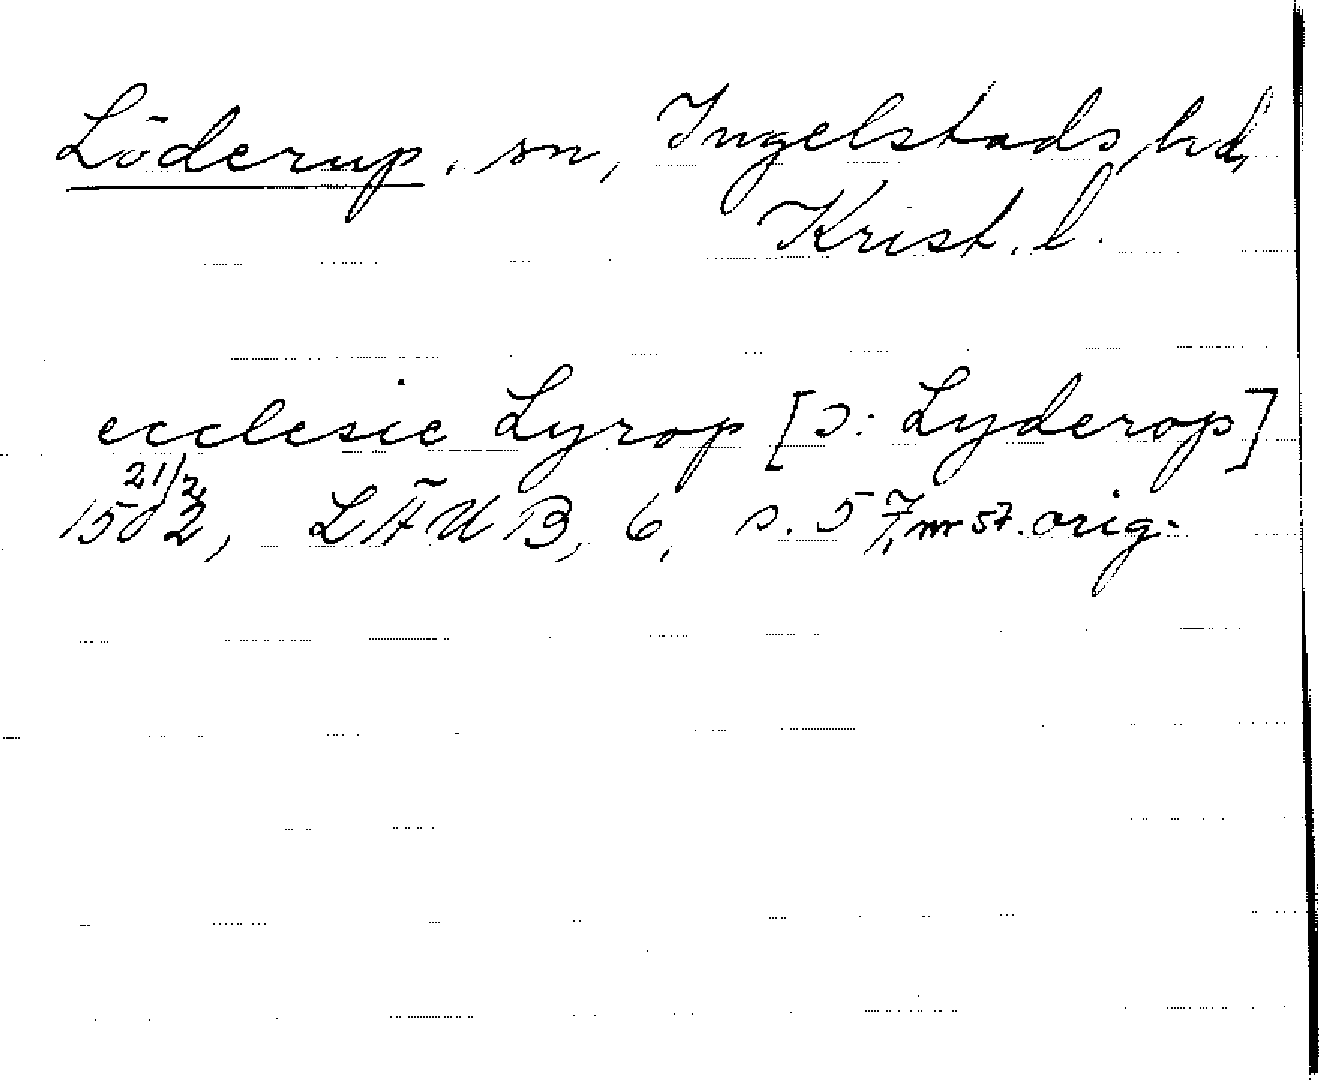 Löderup, sn, Ingelstads hd,
Krist. l.
ecclesie Lyrop [ɔ: Lyderop]
21/2
1502, LÄUB, 6, s. 57, nr 57. orig.